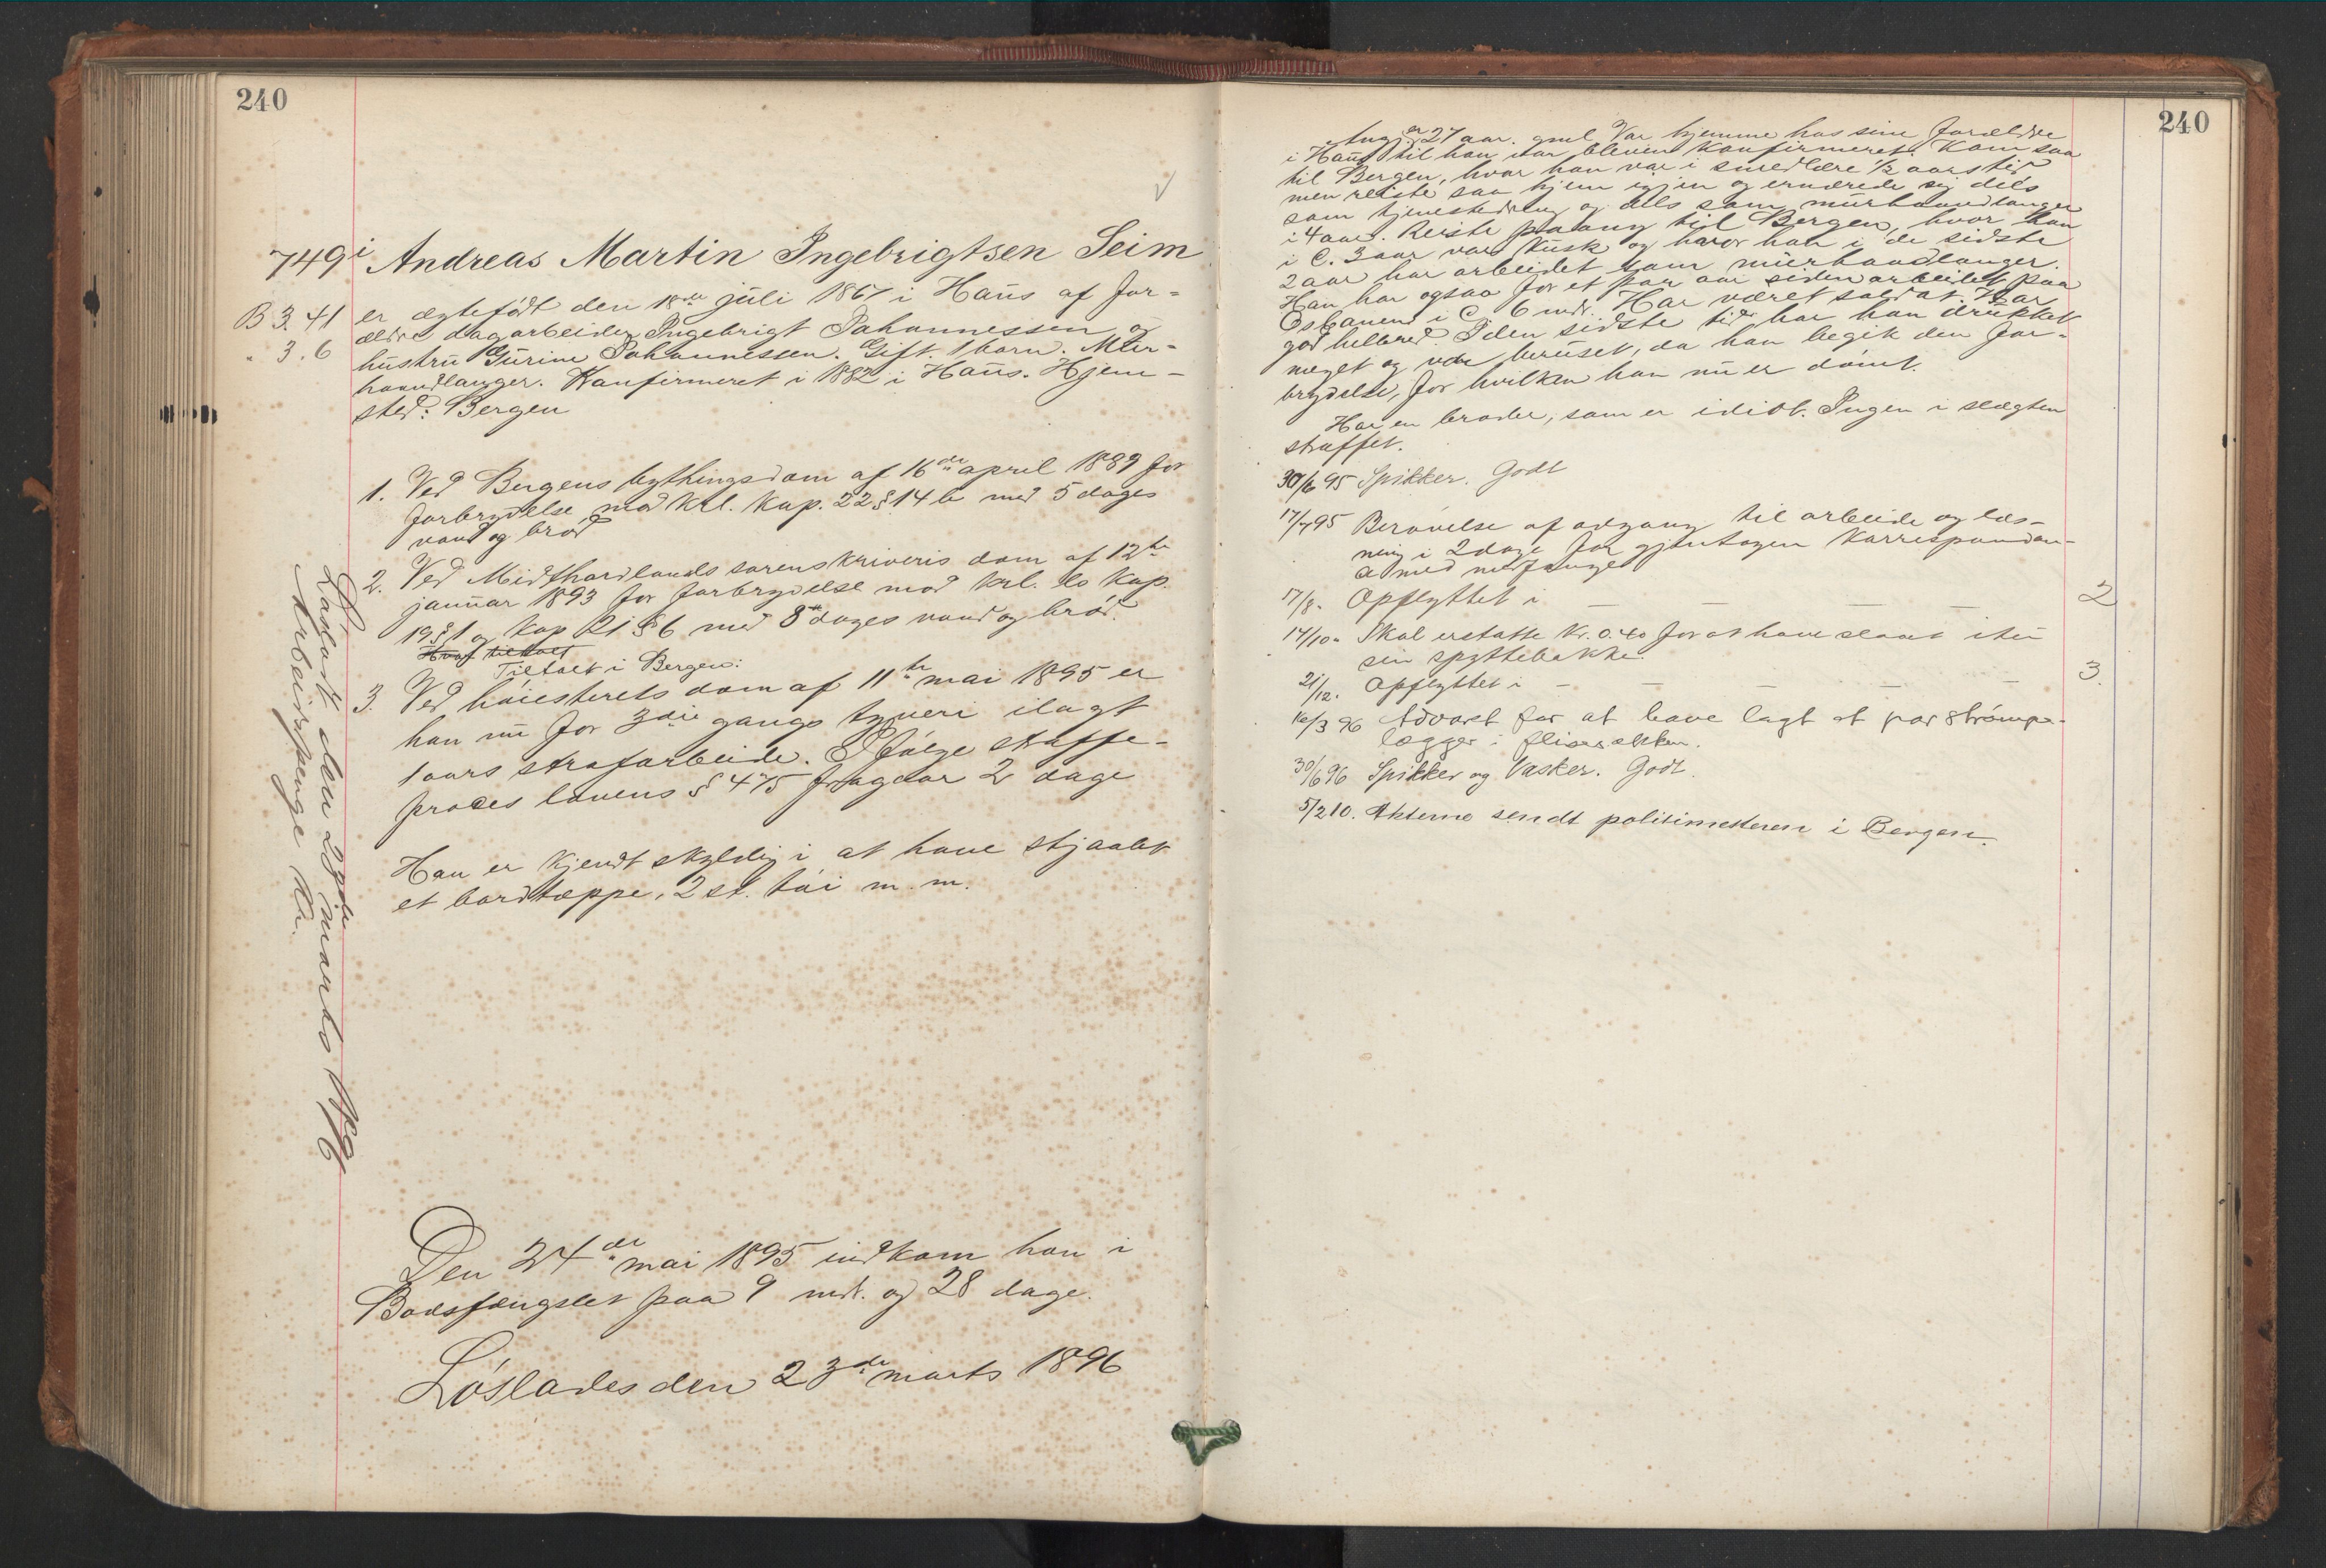 240
749i Andreas Martin Ingebrigtsen Seim
B 3. 41
" 3. 6
er ægtefødt den 18de juli 1867 i Haus af for-
ældre dagarbeider Ingebrigt Johannessen og
hustru Gurine Johannessen. Gift. 1 barn. Mur-
haandlanger. Konfirmeret i 1882 i Haus. Hjem-
sted: Bergen
1. Ved Bergens bythingsdom af 16de april 1889 for
forbrydelse mod Krl. Kap. 22 § 14 b med 5 dages
vand og brød
2. Ved Midthordlands sorenskriveris dom af 12te
januar 1893 for forbrydelse mod krl. Kap.
19 § 1 og Kap 21 § 6 med 8 dages vand og brød.
Tiltalt i Bergen:
3. Ved høiesterets dom af 11te mai 1895 er
han nu for 3die gangs tyveri ilagt
1 aars strafarbeide. Ifølge straffe-
proces lovens § 475 fragaar 2 dage
Han er kjendt skyldig i at have stjaalet
et bordtæppe, 2 st. tøi m. m.
Løsladt den 23de marts 1896
Arbeidspenge Kr.
Den 24de mai 1895 indkom han i
Bodsfængslet paa 9 mdr. og 28 dage.
Løslades den 23de marts 1896
240
Angj. er 27 aar gml. Var hjemme hos sine forældre
i Haus til han var bleven konfirmeret. Kom saa
til Bergen, hvor han var i smedlære 1/2 aars tid
men reiste saa hjem igjen og ernærede sig dels
som tjenestedreng og dels som murhaandlanger
i 4 aar. Reiste paany til Bergen, hvor han
i C. 3 aar var Kusk og hvor han i de sidste
2 aar har arbeidet som murhaandlanger.
Han har ogsaa for et par aar siden arbeidet paa
Osbanen i C 6 mdr. Har været soldat. Har
god helbred. I den sidste tid har han drukket
meget og var beruset, da han begik den for-
brydelse, for hvilken han nu er dømt.
Har en broder, som er idiot. Ingen i slægten
straffet.
30/6 95 Spikker. Godt
17/7 95 Berøvelse af adgang til arbeide og læs-
ning i 2 dage for gjentagen Korrespondan-
ce med medfange
17/8 " Opflyttet i — — — — 2
14/10 " Skal erstatte Kr. 0.40 for at have slaaet itu
sin spyttebakke.
21/12. Opflyttet i — — — — 3.
16/3 96 Advaret for at have lagt et par strømpe-
lægger i flissækken.
30/6 96 Spikker og Vasker. Godt.
5/2 10. Akterne sendt politimesteren i Bergen.